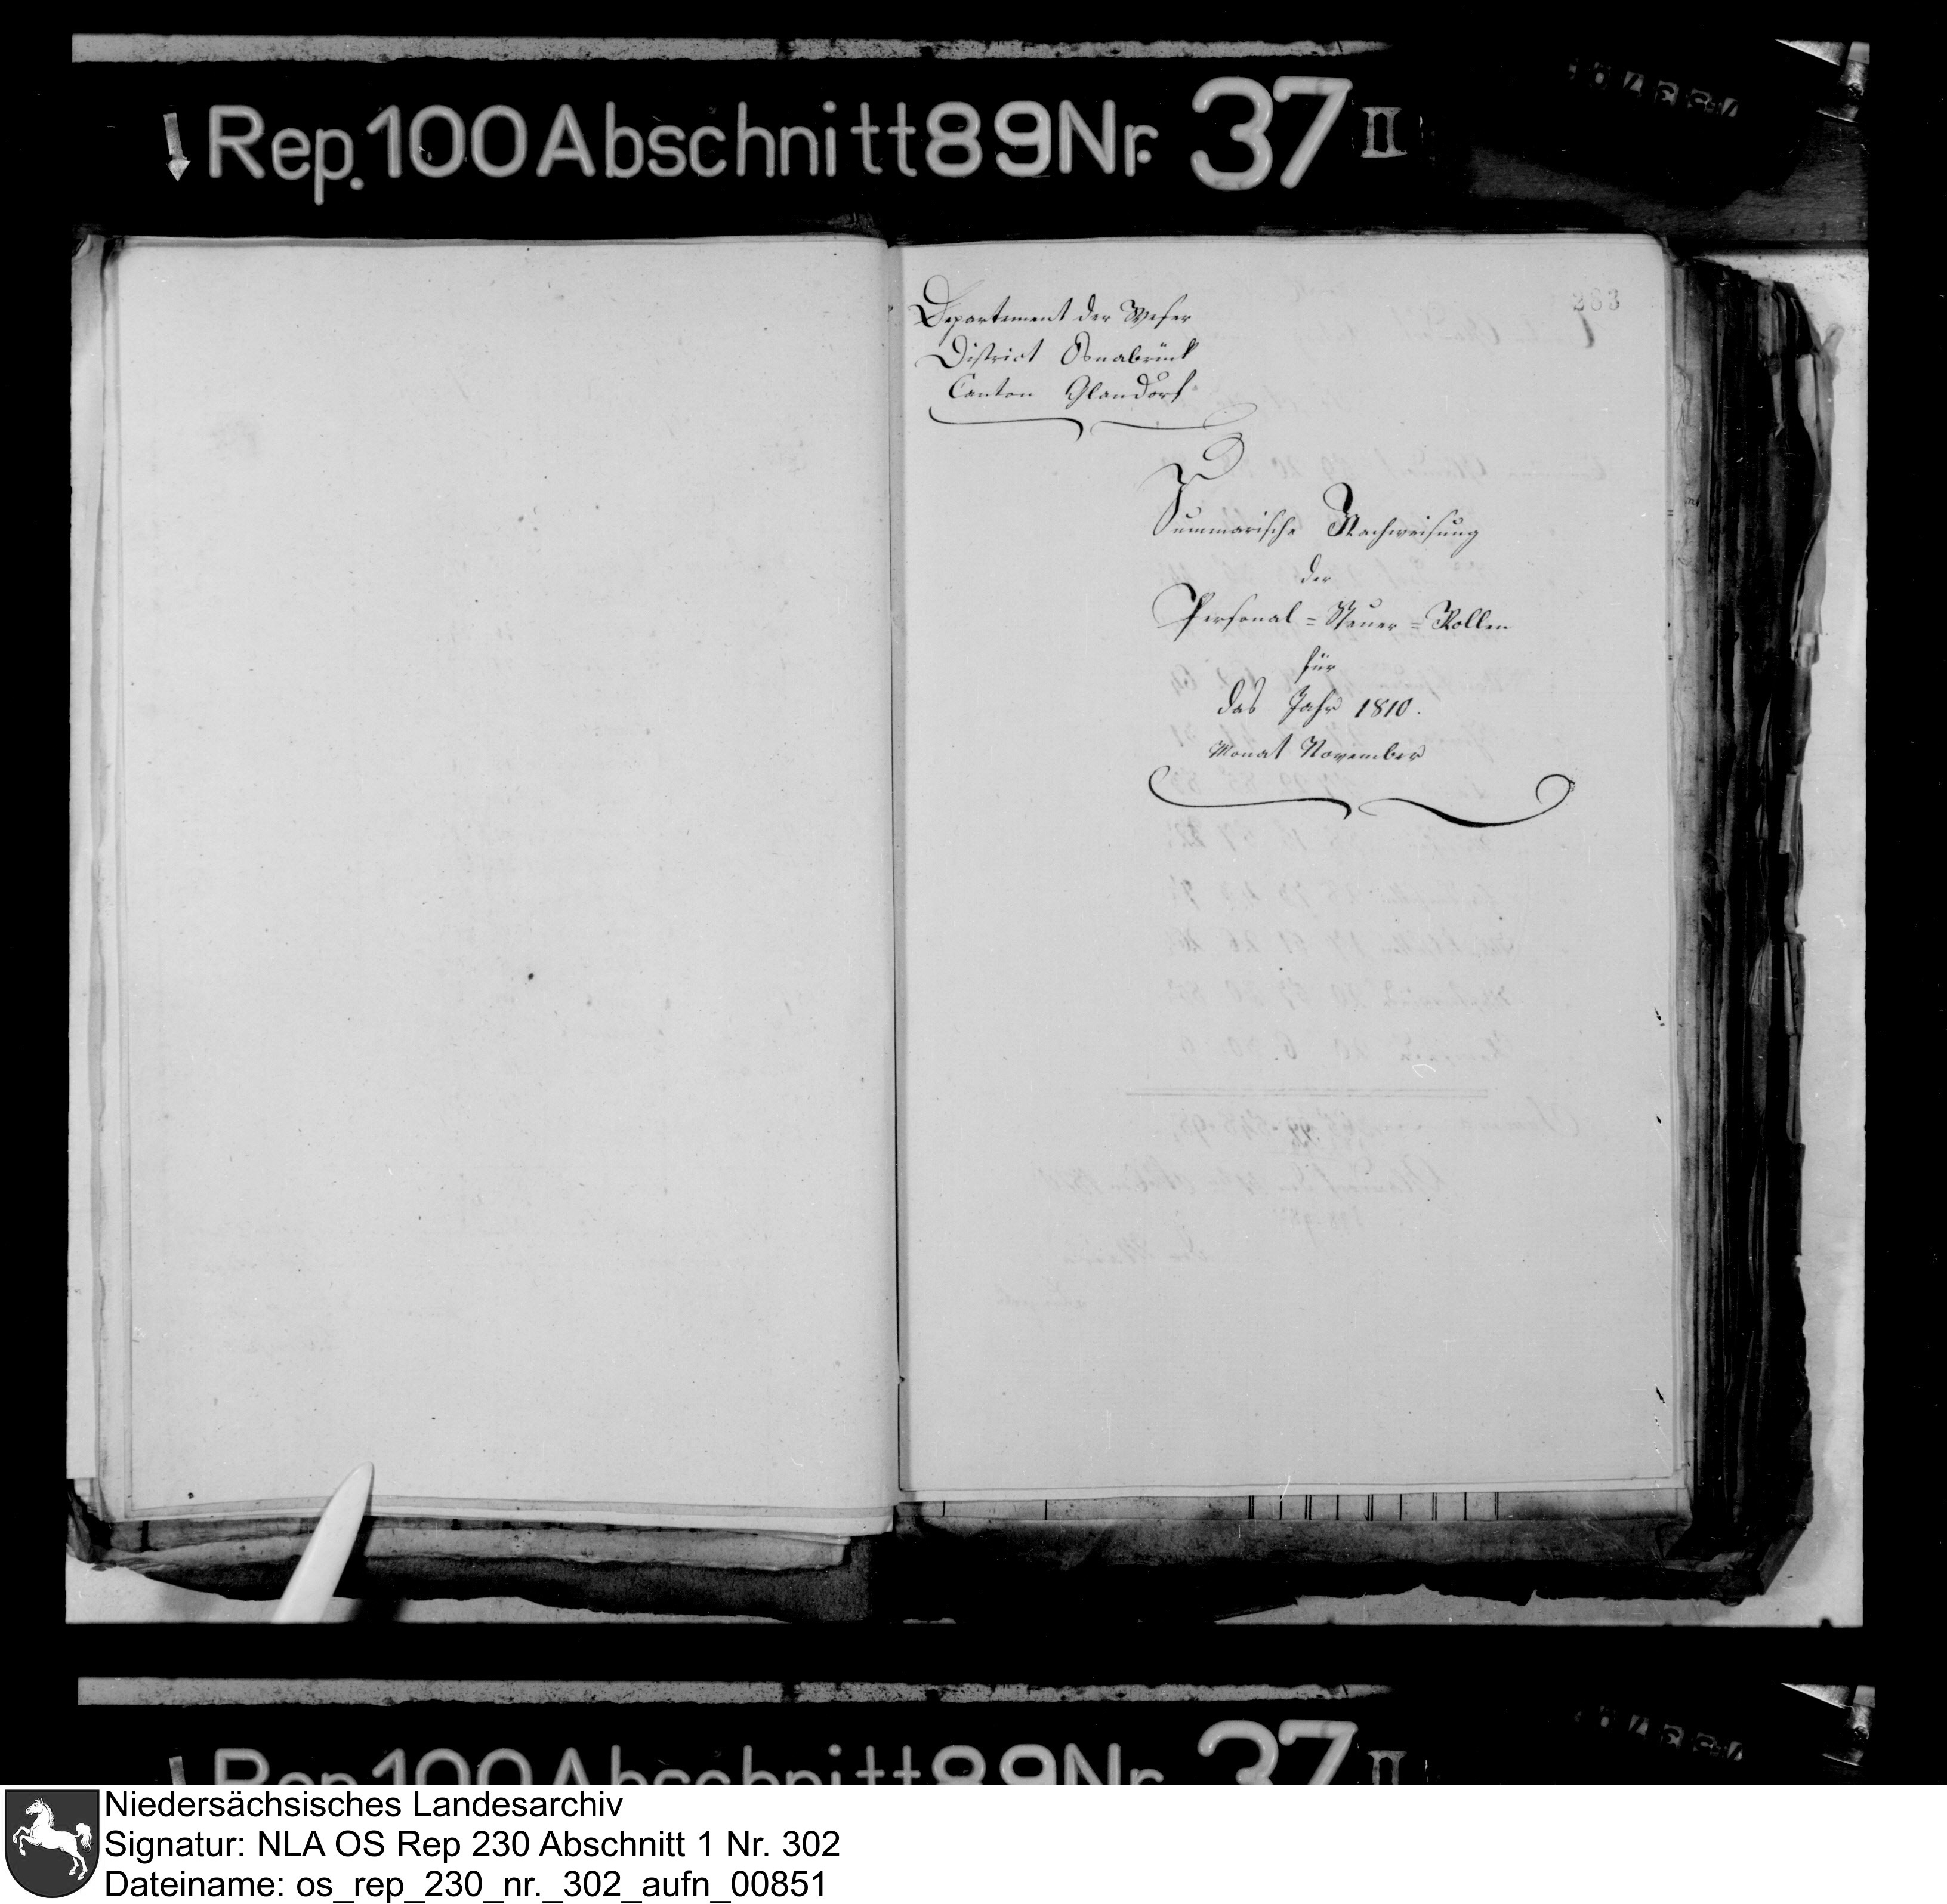 Rep. 100 Abschnitt 89 Nr. 37 II
383
Departement der Weser
District Osnabrück
Canton Glandorf
Summarische Nachweisung
der
Personal = Steuer = Rollen
für
das Jahr 1810.
Monat November
Rep. 100 Abschnitt 89 Nr. 37 II
Niedersächsisches Landesarchiv
Signatur: NLA OS Rep 230 Abschnitt 1 Nr. 302
Dateiname: os_rep_230_nr._302_aufn_00851